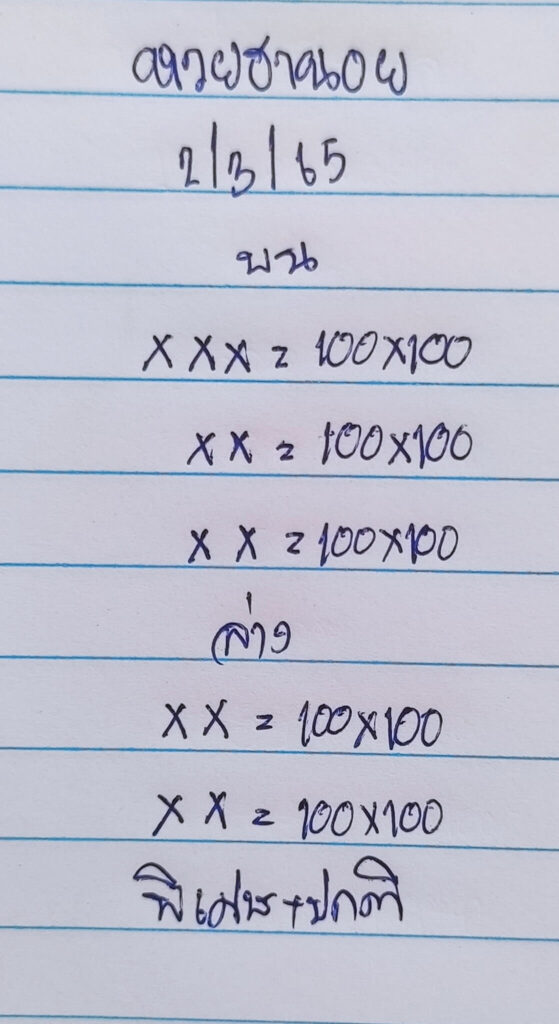 หวยฮานอย
2/3/65
บน
xxx = 100x100
xx = 100x100
xx = 100x100
ล่าง
xx = 100x100
xx = 100x100
พิเศษ+ปกติ